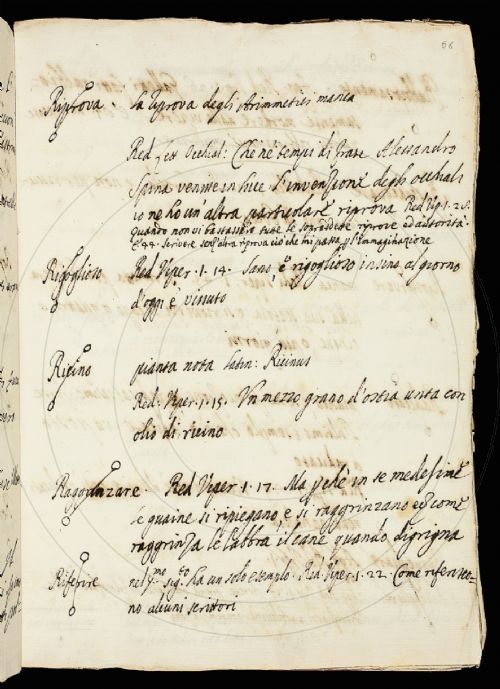 68
Riprova . la riprova degli Arimmetici manca
Red. lett. Occhial: Che ne' tempi di frate Alessandro
Spina venisse in luce l'invenzione degli occhiali
io ne ho un'altra particolare riprova Red Vip 1. 25.
quando non vi bastassero tutte le sopraddette riprove ed autorità.
E 44. Scrivere senz'altra riprova ciò che mi passa p l'immaginazione
Rigoglioso Red. Viper. 1. 14. Sano, e rigoglioso insino al giorno
d'oggi è vissuto
Ricino pianta nota latin: Ricinus
Red: Viper. 1. 15. Un mezzo grano d'ostia unta con
olio di ricino
Raggrinzare. Red Viper 1. 17. Ma in se medesime
le guaine si ripiegano e si raggrinzano come
raggrinza le labbra il cane quando digrigna
Riferire nel ha un solo esempio. Red. Viper. 1. 22. Come riferisco-
no alcuni scrittori